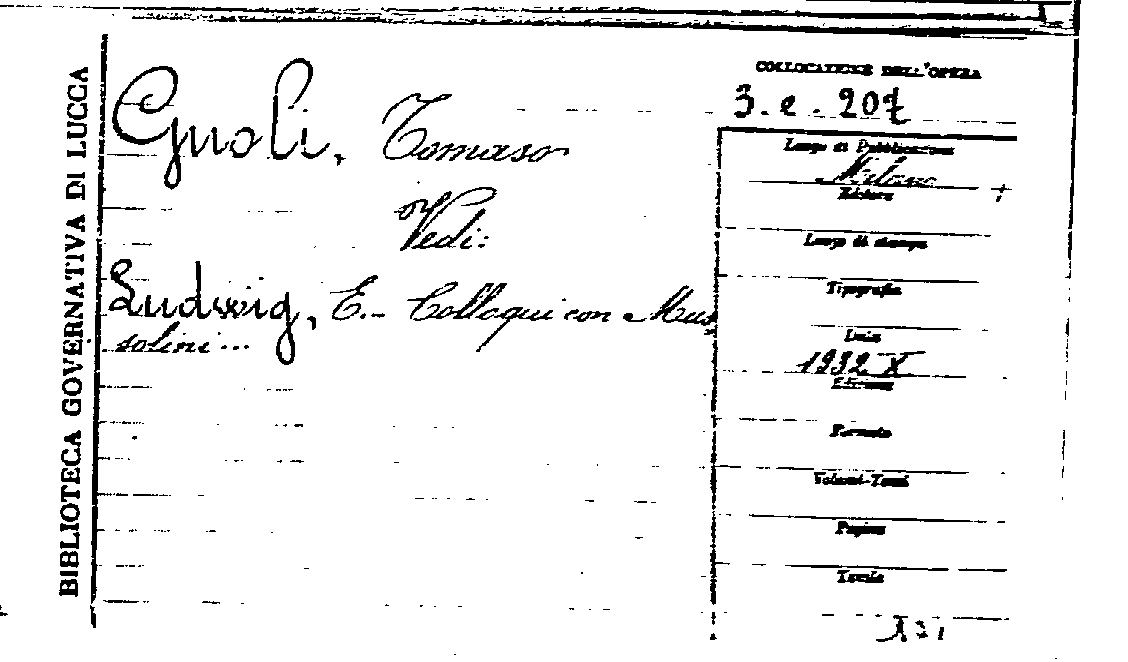 BIBLIOTECA GOVERNATIVA DI LUCCA
Gnoli, Tomaso
Vedi:
Ludwig, E.- Colloqui con Mus
solini...
COLLOCAZIONE DELL'OPERA
3. e. 207
Luogo di Pubblicazione
Milano
Editore
Luogo di stampa
Tipografia
Data
1932 X
Edizione
Formato
Volumi-Tomi
Pagine
Tavole